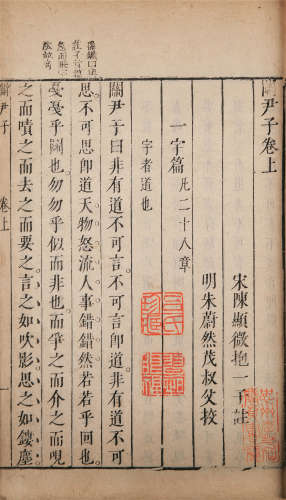 關尹子卷上
宋陳顯微抱一子註
明朱蔚然茂叔父挍
一宇篇 凡二十八章
宇者道也
關尹子曰非有道不可言不可言卽道非有道不可
思不可思卽道天物怒流人事錯錯然若若乎回也
戞戞乎鬬也勿勿乎似而非也而爭之而介之而哯
之而嘖之而去之而要之言之如吹影思之如鏤塵
卷上